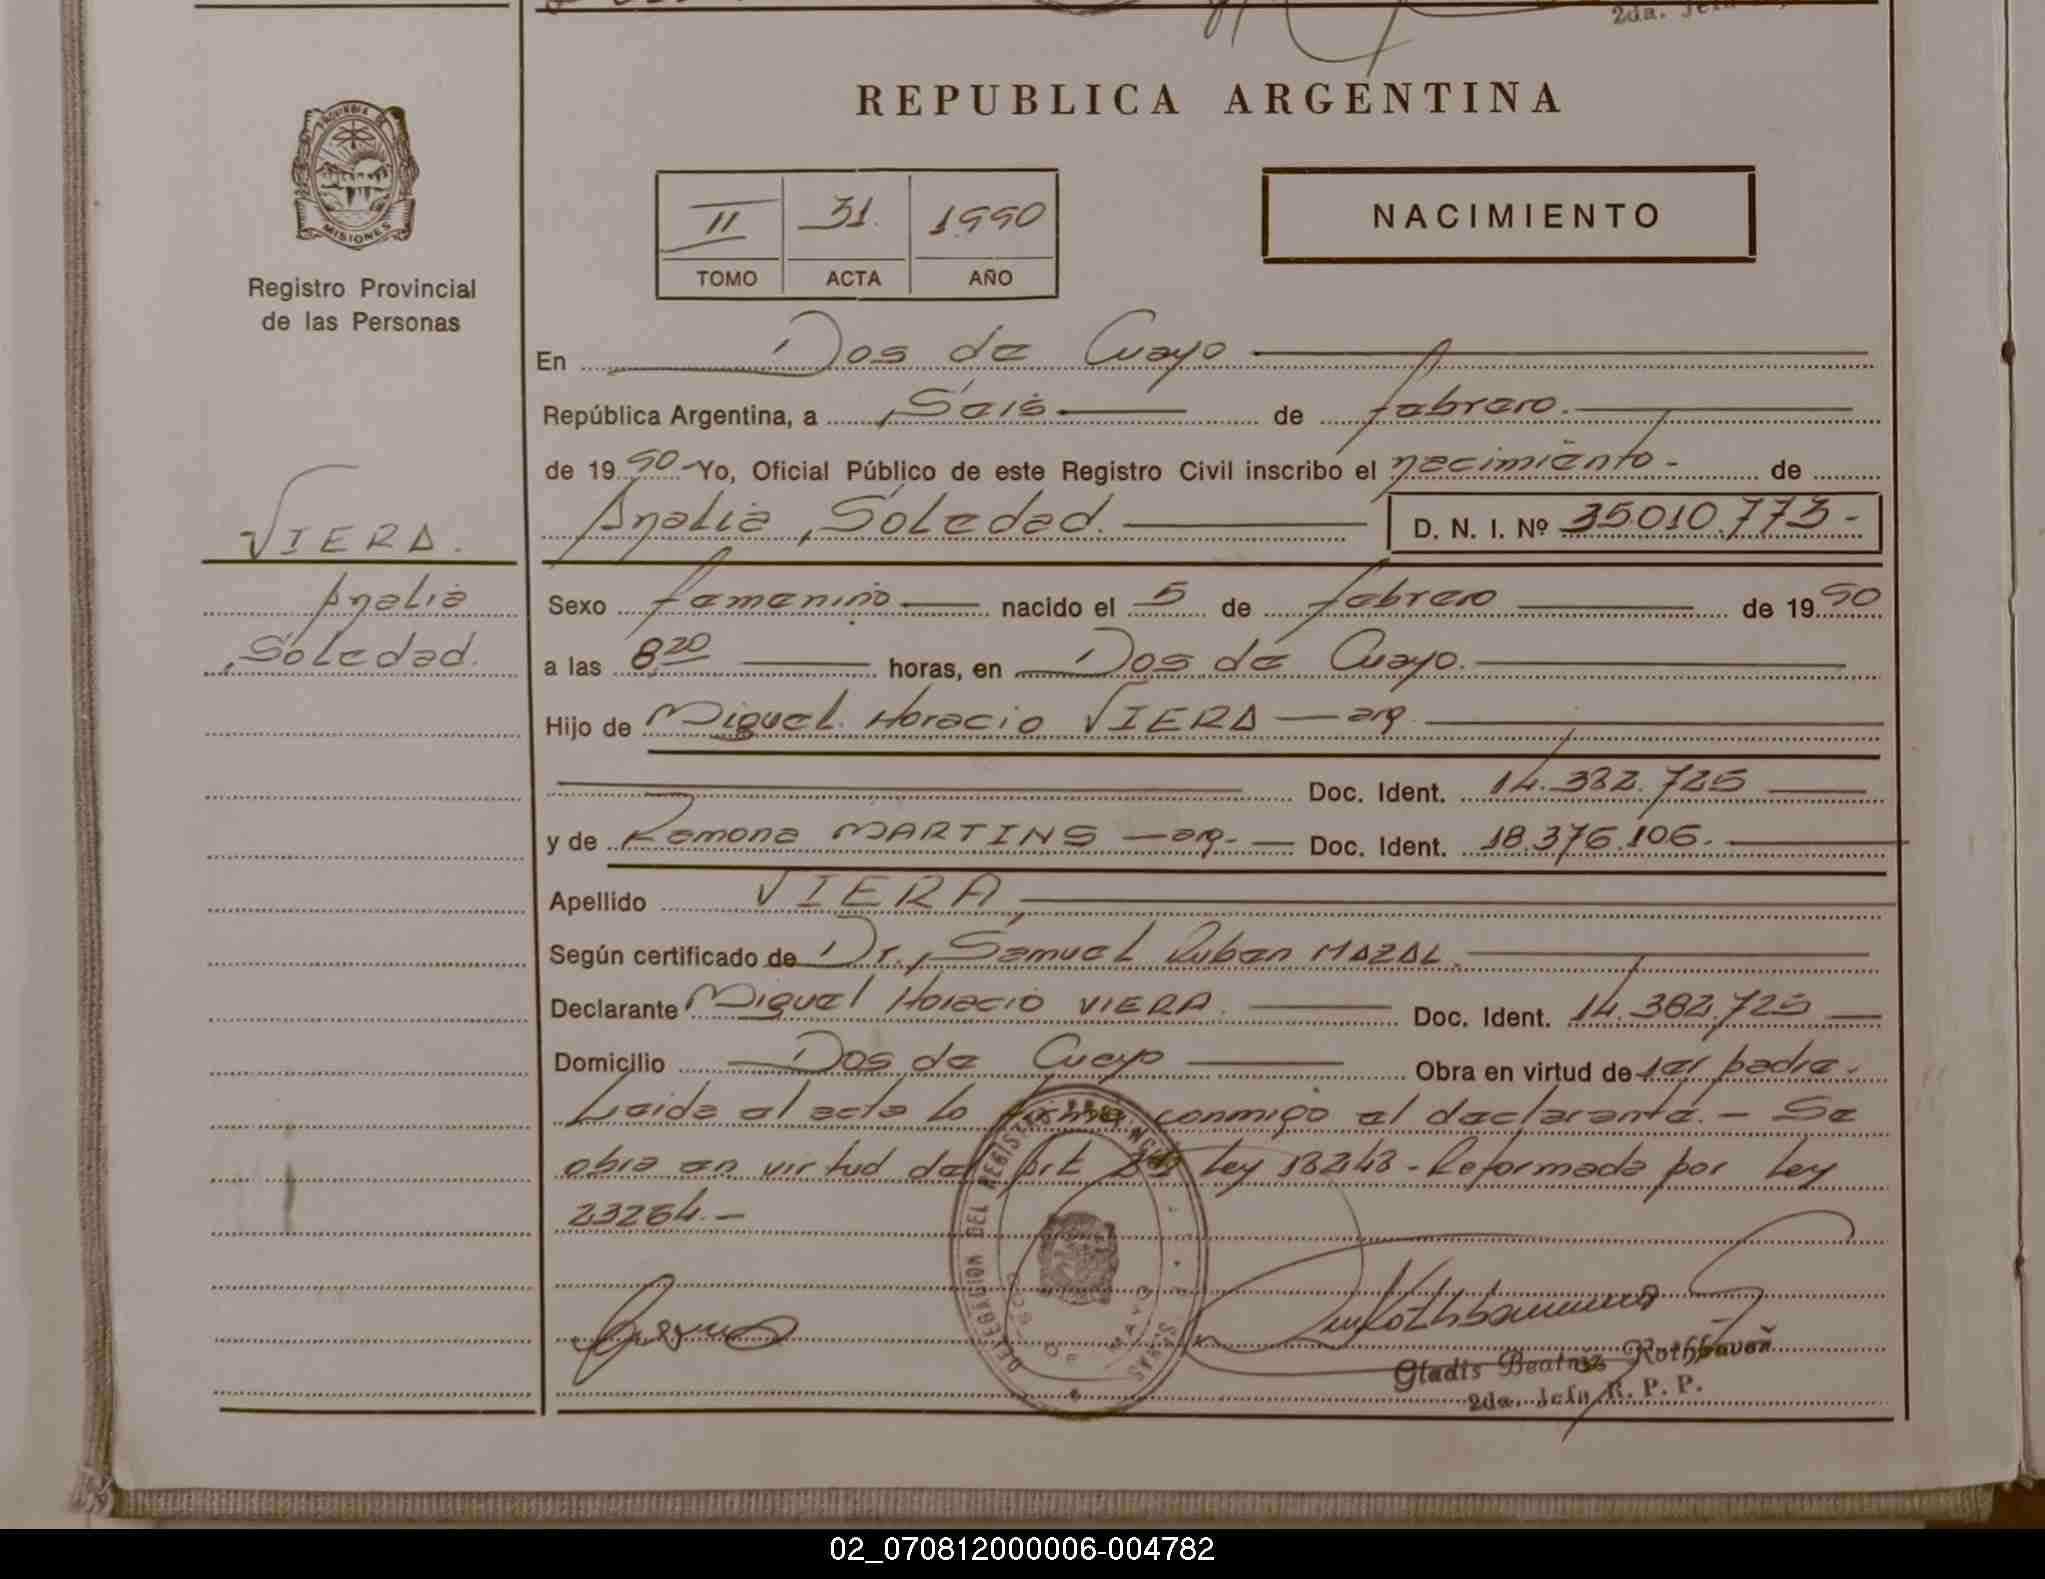 2da. Jefa
REPUBLICA ARGENTINA
PROVINCIA DE
MISIONES
Registro Provincial
de las Personas
II 31. 1990
TOMO ACTA AÑO
NACIMIENTO
En Dos de Mayo
República Argentina, a Seis de febrero.
de 1990 - Yo, Oficial Público de este Registro Civil inscribo el nacimiento - de
Analia Soledad. D. N. I. Nº 35.010.773-
VIERA.
Analia
Soledad.
Sexo femenino nacido el 5 de febrero de 1990
a las 8,20 horas, en Dos de Mayo.
Hijo de Miguel Horacio VIERA - arg.
Doc. Ident. 14.382.725
y de Ramona MARTINS - arg. - Doc. Ident. 18.376.106.
Apellido VIERA
Según certificado de Dr. Samuel Ruben MAZAL.
Declarante Miguel Horacio VIERA. Doc. Ident. 14.382.725
Domicilio Dos de Mayo Obra en virtud de ser padre.
Leida el acta lo firma conmigo el declarante. - Se
obra en virtud del Art Ley 18248 - Reformada por Ley
23264.-
DELEGACION DEL REGISTRO PROVINCIAL
DOS DE MAYO
Gladis Beatriz Rothbauer
2da. Jefa R. P. P.
02_070812000006-004782